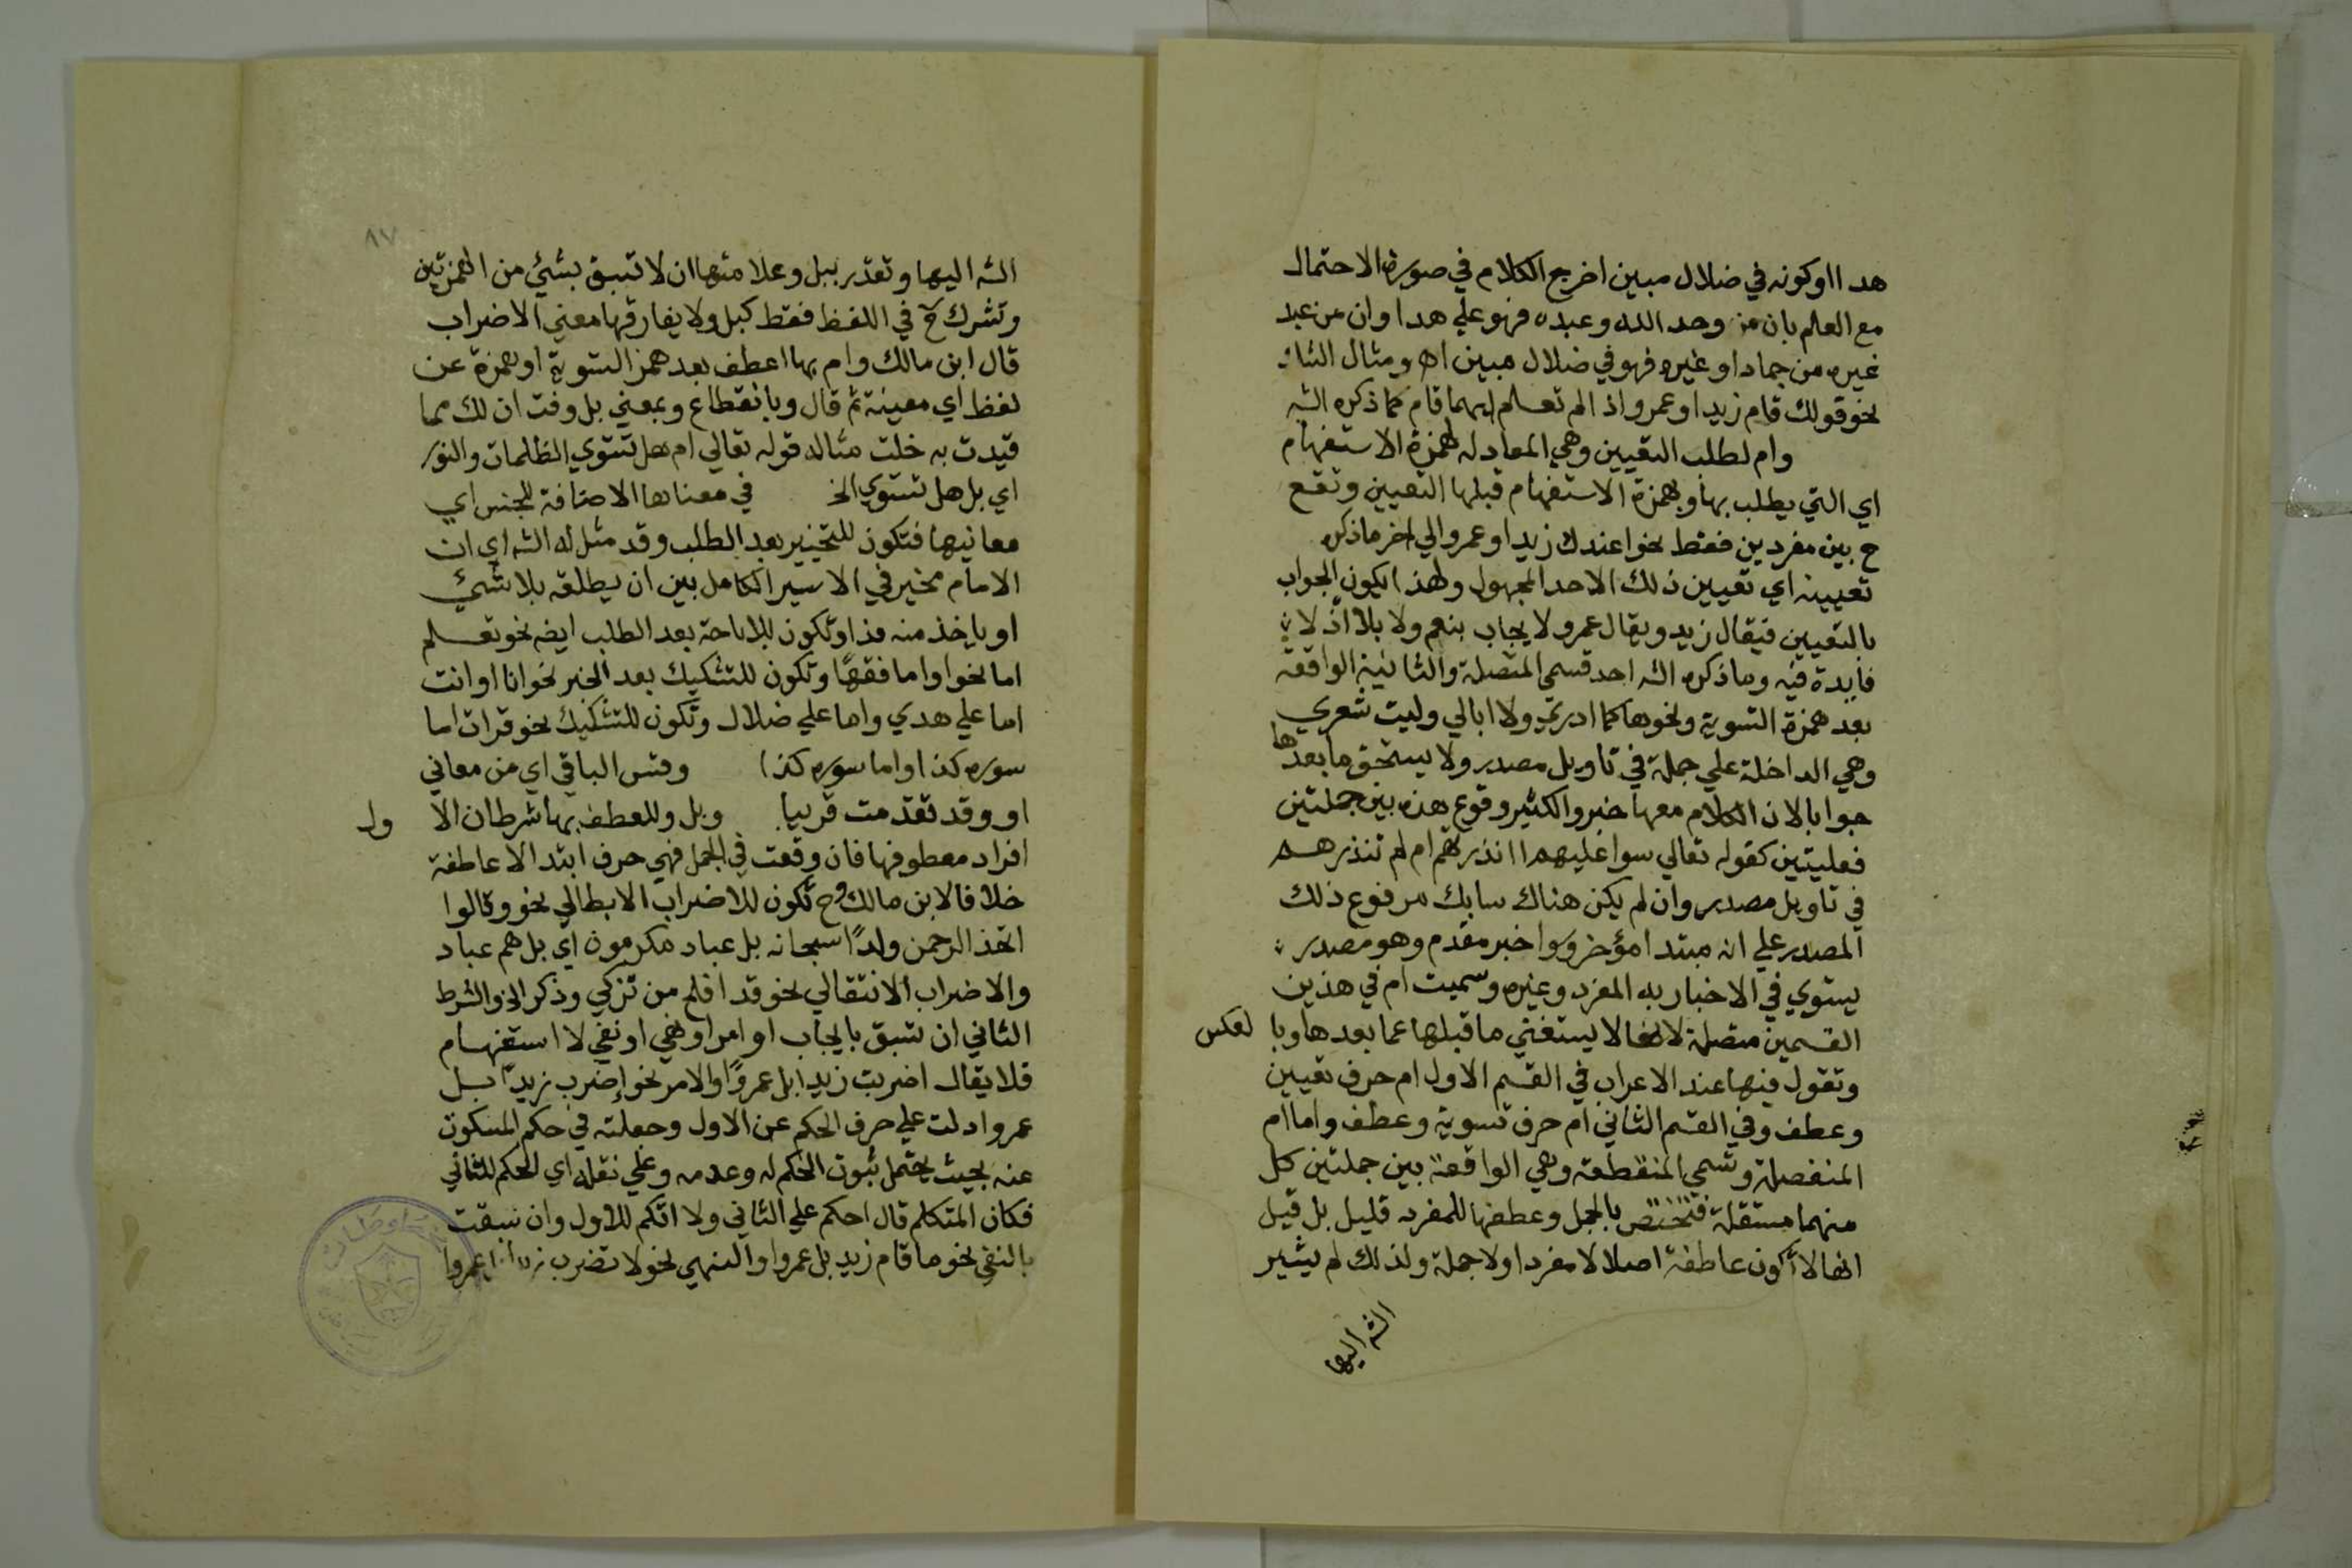 هدا اوكونه في ضلال مبين اخرج الكلام في صورة الاحتمال
مع العلم بان من وحد الله وعبده فهو علي هدا وان من عبد
غيره من جماد او غيره فهو في ضلال مبين اه ومثال الشك
نحو قولك قام زيد او عمرو اذا لم تعلم ايهما قام كما ذكره الشه
وام لطلب التعيين وهي المعادله لهمزة الاستفهام
اي التي يطلب بها وبهمزة الاستفهام قبلها التعيين وتقع
ح بين مفردين فقط نحو اعندك زيد او عمرو الي اخر ما ذكره
تعيينه اي تعيين ذلك الاحد المجهول ولهذا يكون الجواب
بالتعيين فيقال زيد ويقال عمرو لا يجاب بنعم ولا بلا اذ لا
فايدة فيه وما ذكره الشه احد قسمي المتصلة والثانية الواقعة
بعد همزة التسوية ونحوها كما ادري ولا ابالي وليت شعري
وهي الداخلة علي جملة في تاويل مصدر ولا يستحق ما بعدها
جوابا لان الكلام معها خبر والكثير وقوع هذه بين جملتين
فعليتين كقوله تعالي سوا عليهم اانذرتهم ام لم تنذرهم
في تاويل مصدر وان لم يكن هناك سابك مرفوع ذلك
المصدر علي انه مبتدا مؤخر وسوا خبر مقدم وهو مصدر
يستوي في الاخبار به المفرد وغيره وسميت ام في هذين
القسمين متصلة لانها لا يستغني ما قبلها عما بعدها وبا لعكس
وتقول فيها عند الاعراب في القسم الاول ام حرف تعيين
وعطف وفي القسم الثاني ام حرف تسوية وعطف واما ام
المنفصلة وتسمي المنقطعة وهي الواقعة بين جملتين كل
منهما مستقلة فتختص بالجمل وعطفها للمفرد قليل بل قيل
انها لا تكون عاطفة اصلا لا مفردا ولا جملة ولذلك لم يشير
الشه اليها
٨٧
الشه اليها وتقدر ببل وعلامتها ان لا تسبق بشيء من الهمزتين
وتشرك ح في اللفظ فقط كبل ولا يفارقها معني الاضراب
قال ابن مالك وام بها اعطف بعد همز التسوية او همزة عن
لفظ اي مغنية ثم قال وبانقطاع وبمعني بل وفت ان لك مما
قيدت به خلت مثاله قوله تعالي ام هل تستوي الظلمات والنور
اي بل هل تستوي الخ في معناها الاضافة للجنس اي
معانيها فتكون للتخيير بعد الطلب وقد مثل له الشه اي ان
الامام مخير في الاسير الكامل بين ان يطلقه بلا شيء
او ياخذ منه فدا وتكون للاباحة بعد الطلب ايضه نحو تعلم
اما نحوا واما فقها وتكون للتشكيك بعد الخبر نحو انا او انت
اما علي هدي واما علي ضلال وتكون للتشكيك نحو قرات اما
سوره كذا واما سوره كذا وقس الباقي اي من معاني
او وقد تقدمت قريبا وبل وللعطف بها شرطان الا ول
افراد معطوفها فان وقعت في الجمل فهي حرف ابتدا لا عاطفة
خلافا لابن مالك وح تكون للاضراب الابطالي نحو وقالوا
اتخذ الرحمن ولدًا سبحانه بل عباد مكرمون اي بل هم عباد
والاضراب الانتقالي نحو قد افلح من تزكي وذكر الخ والشرط
الثاني ان تسبق بايجاب او امر او نهي او نفي لا استفهام
فلا يقال اضربت زيدا بل عمرًوا والامر نحو إضرب زيدًا بل
عمروا دلت علي حرف الحكم عن الاول وجعلته في حكم المسكوت
عنه بحيث يحتمل ثبوت الحكم له وعدمه وعلي نقله اي الحكم للثاني
فكان المتكلم قال احكم علي الثاني ولا اتكم للاول وان سبقت
بالنفي نحو ما قام زيد بل عمروا والنهي نحو لا تضرب عمروا